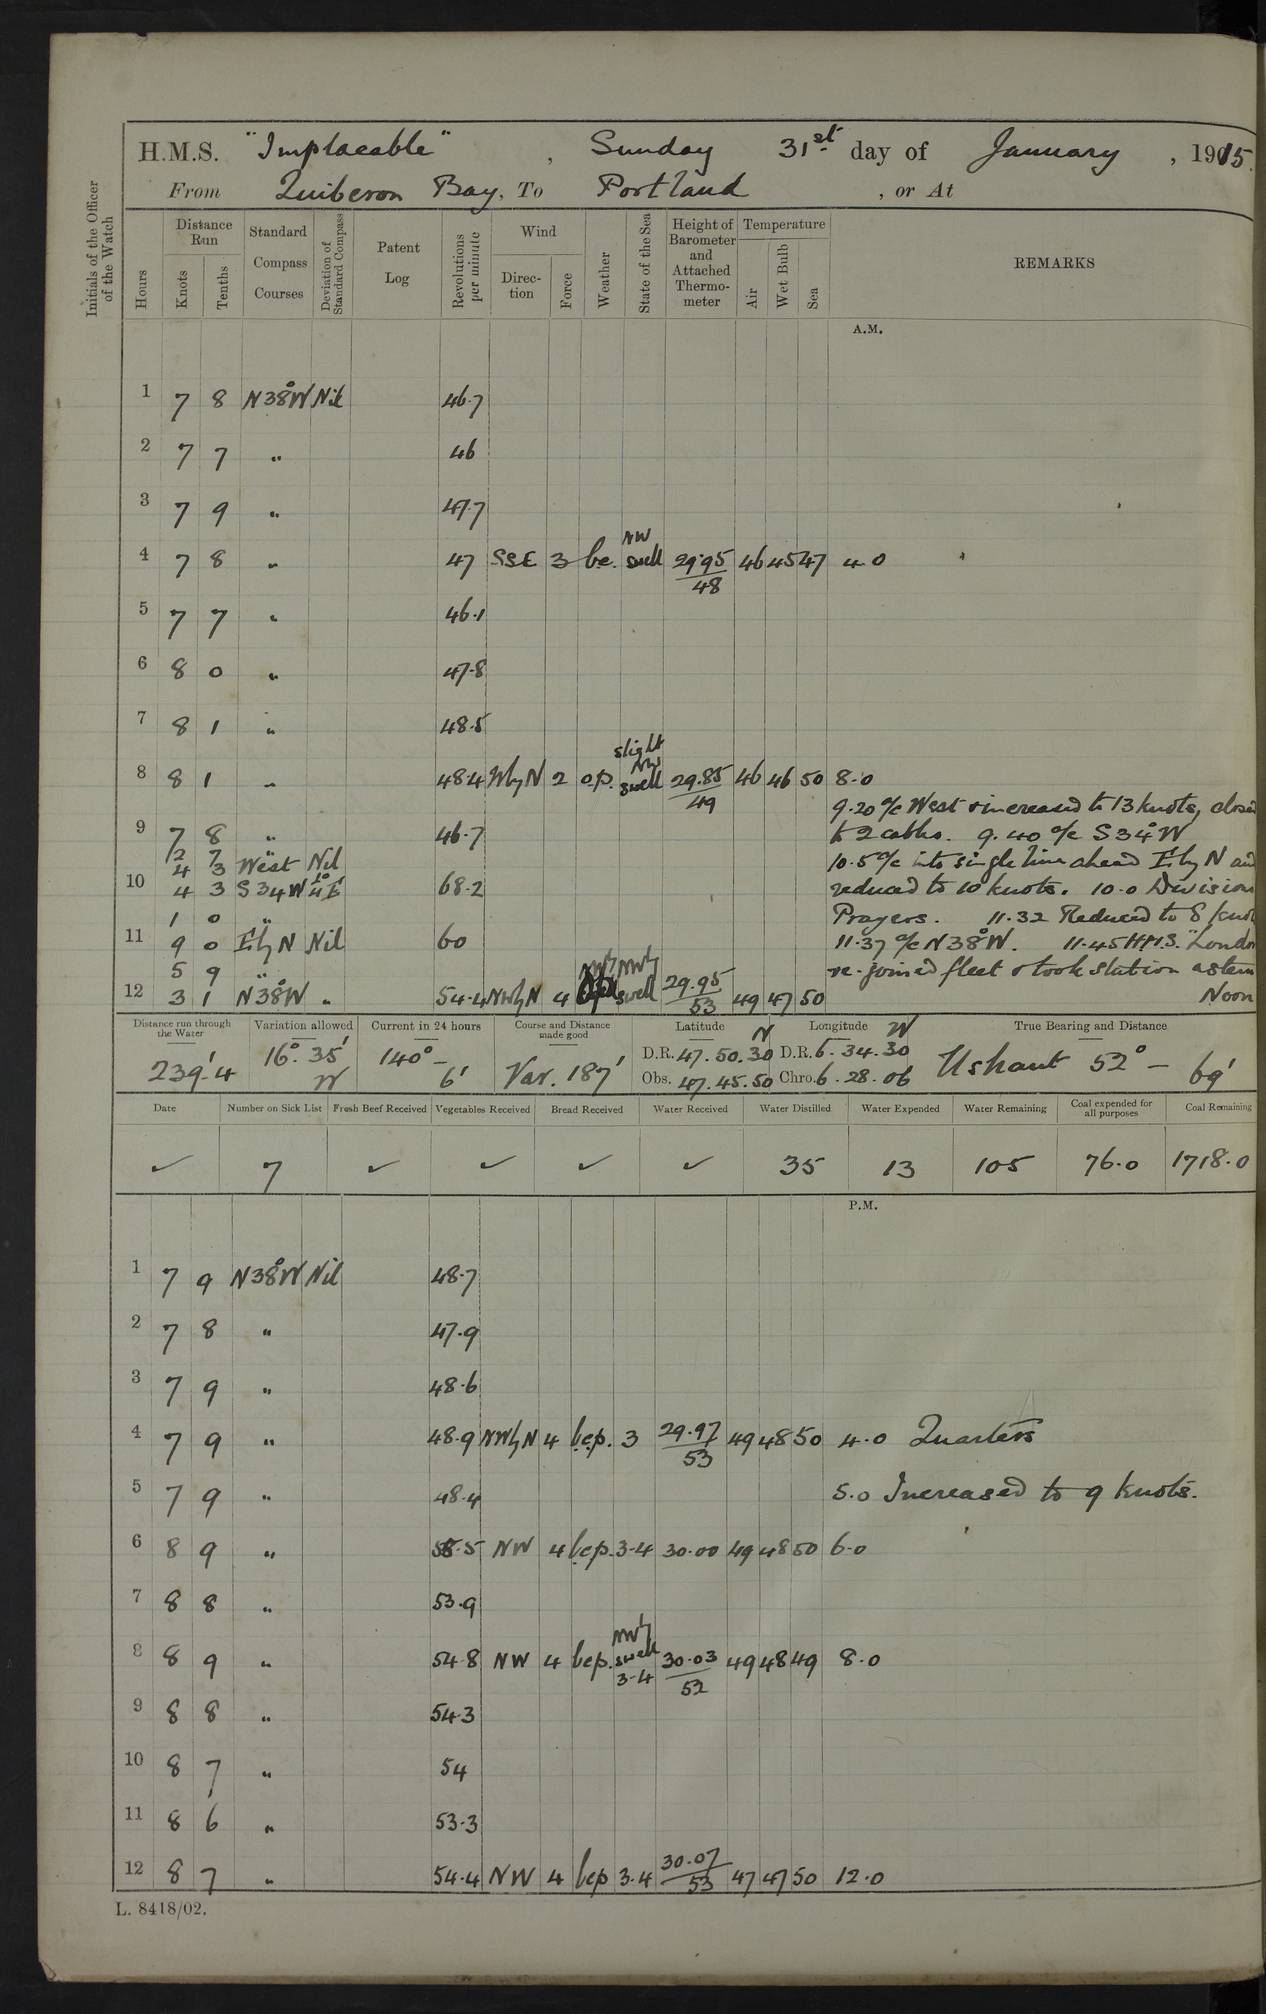 H.M.S. "Implacable", Sunday 31st day of January, 1915.
From Quiberon Bay, To Portland, or At
Initials of the Officer of the Watch
Hours
Distance Run
Knots Tenths
Standard Compass Courses
Deviation of Standard Compass
Patent Log
Revolutions per minute
Wind
Direction Force
Weather
State of the Sea
Height of Barometer and Attached Thermometer
Temperature
Air Wet Bulb Sea
REMARKS
A.M.
1 7 8 N38°W Nil 46.7
2 7 7 " 46
3 7 9 " 47.7
4 7 8 " 47 SSE 3 bc. NW swell 29.95/48 46 45 47 4.0
5 7 7 " 46.1
6 8 0 " 47.8
7 8 1 " 48.5
8 8 1 " 48.4 WbyN 2 o.p. slight NW swell 29.85/49 46 46 50 8.0
9.20 a/c West & increased to 13 knots, closed
9 7 8 " 46.7 to 2 cables. 9.40 a/c S34°W
2 7 "
4 3 West Nil 10.5 a/c into single line ahead EbyN and
10 4 3 S34W 68.2 reduced to 10 knots. 10.0 Division
1 0 " Prayers. 11.32 Reduced to 8 knot
11 9 0 EbyN Nil 60 11.37 a/c N38°W. 11.45 H.M.S. "London
5 9 " re-joined fleet & took station astern
12 3 1 N38°W " 54.4 NWbyN 4 NWly swell 29.95/53 49 47 50 Noon
Distance run through the Water
239'.4
Variation allowed
16° 35' W
Current in 24 hours
140° - 6'
Course and Distance made good
Var. 187'
Latitude N
D.R. 47.50.30
Obs. 47.45.50
Longitude W
D.R. 6.34.30
Chro. 6.28.06
True Bearing and Distance
Ushant 52° - 69'
Date Number on Sick List Fresh Beef Received Vegetables Received Bread Received Water Received Water Distilled Water Expended Water Remaining Coal expended for all purposes Coal Remaining
✓ 7 ✓ ✓ ✓ ✓ 35 13 105 76.0 1718.0
P.M.
1 7 9 N38°W Nil 48.7
2 7 8 " 47.9
3 7 9 " 48.6
4 7 9 " 48.9 NWbyN 4 bcp. 3 29.97/53 49 48 50 4.0 Quarters
5 7 9 " 48.4 5.0 Increased to 9 knots.
6 8 9 " NW 4 bcp. 3-4 30.00 49 48 50 6.0
7 8 8 " 53.9
8 8 9 " 54.8 NW 4 bcp. NWly swell 3-4 30.03/52 49 48 49 8.0
9 8 8 " 54.3
10 8 7 " 54
11 8 6 " 53.3
12 8 7 " 54.4 NW 4 bcp 3.4 30.07/53 47 47 50 12.0
L. 8418/02.